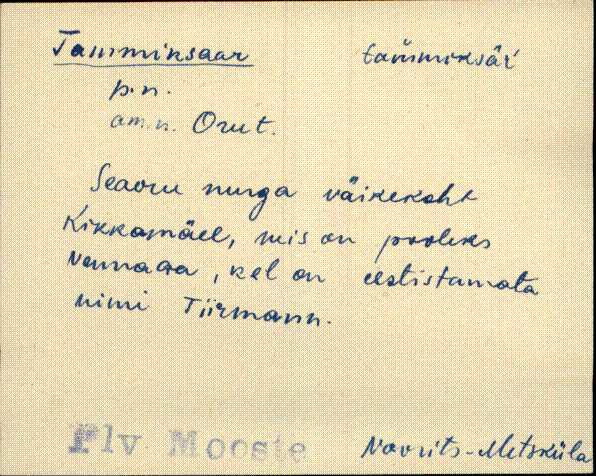 Tamminksaar tammiksār
p.n.
am.n. Orut.
Seaoru nurga väikekoht
Kikkamäel, mis on pooleks
vennaga, kel on eestistamata
nimi Tiirmann.
Plv Mooste Noorits-Metsküla